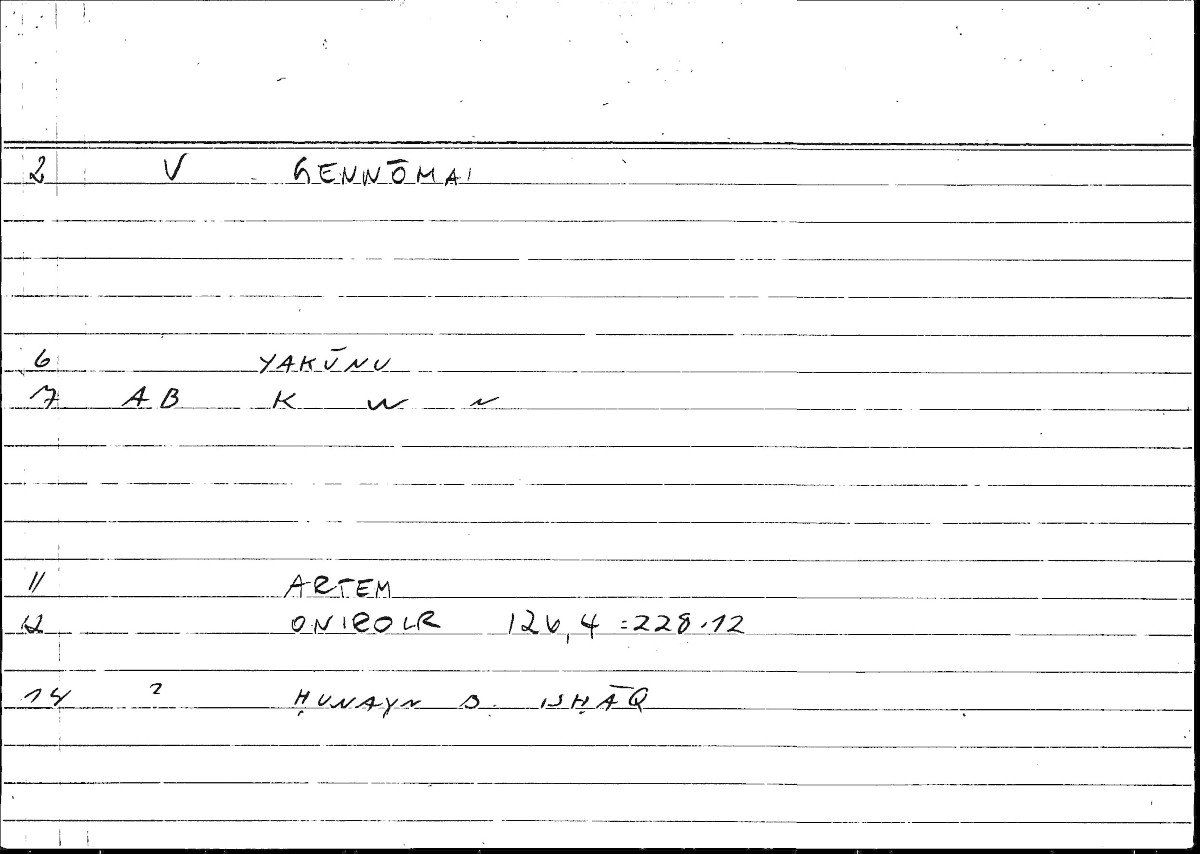 2 V GENNŌMAI
6 YAKŪNU
7 AB K W N
11 ARTEM
12 ONIROCR 126,4 = 228.12
14 ? ḤUNAYN B. ISḤĀQ